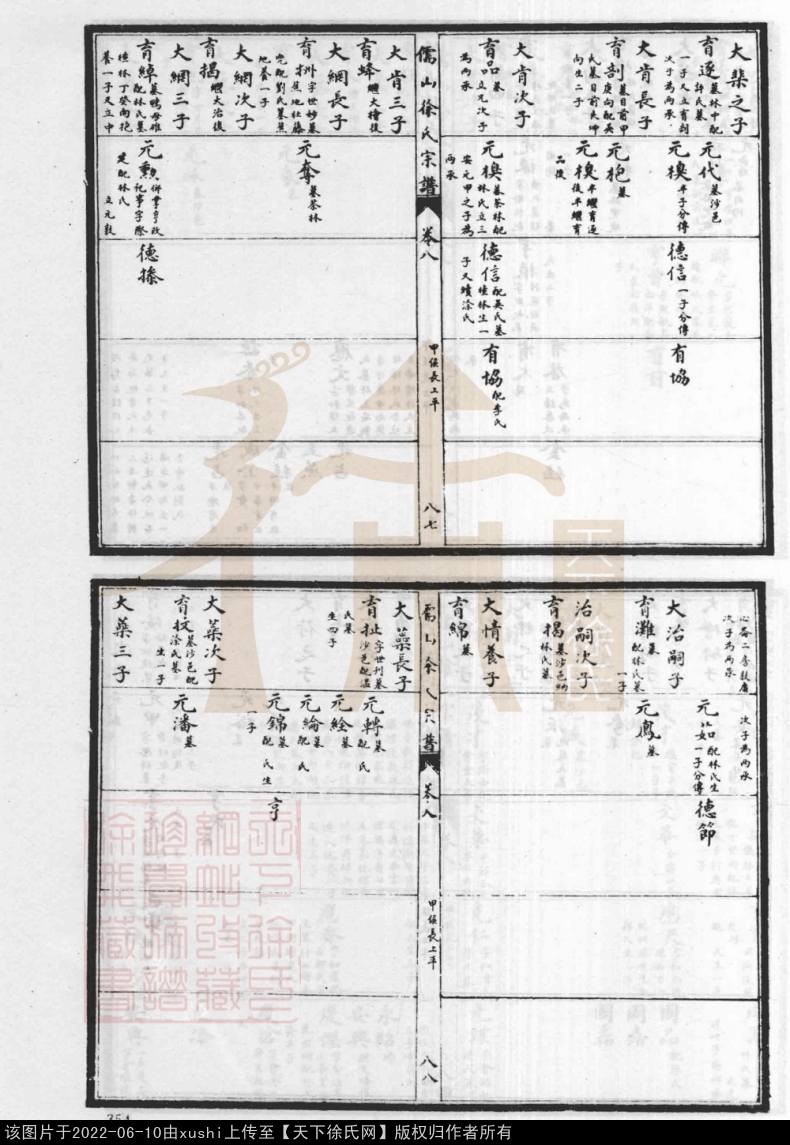 大㭉之子
育逐 墓林中配
許氏墓
一子又立育剖
次子為兩承
元代 墓沙邑
元模 半子分傳
德信 一子分傳
有協
大肯長子
育剖 墓日前甲
庚向配吳
氏墓日前夫坤
向生二子
元抱 墓
元模 半繼育逐
後半繼育
品後
大肯次子
育品 墓
立元次子
為兩承
元模 墓茶林配
林氏立三
安元甲之子為
兩承
德信 配吳氏墓
崖林生一
子又續涂氏
有協 配李氏
儒山徐氏宗譜
卷八
甲侯長上平
八七
大肯三子
育蜂 繼大檜後
大網長子
育抍 字世妙墓
蕉地灶藤
完配劉氏墓蕉
地養一子
元奪 墓茶林
大網次子
育揭 繼大治後
大網三子
育綽 墓鴨母雄
配林氏墓
崖林丁癸向抱
養一子又立中
元勲 併學亨改
記事字際
定配林氏
立元敦
德搽
心崙二房敦廣
次子為兩承
次子為兩承
元茹 配林氏生
一子分傳
德節
大治嗣子
育灘 墓
配林氏墓
一子
元鳳 墓
治嗣次子
育揭 墓沙邑
林氏墓
大情養子
育綿 墓
儒山徐氏宗譜
卷八
甲侯長上平
八八
大藁長子
育扯 字世刊墓
沙邑配温
氏墓
生四子
元轉 墓
配 氏
元銓 墓
元綸 墓
配 氏
元錦 墓
配 氏生
一子
亨
大藁次子
育扠 墓沙邑配
涂氏墓
生一子
元潘 墓
大藁三子
天下徐氏網
該图片于2022-06-10由xushi上传至【天下徐氏网】版权归作者所有